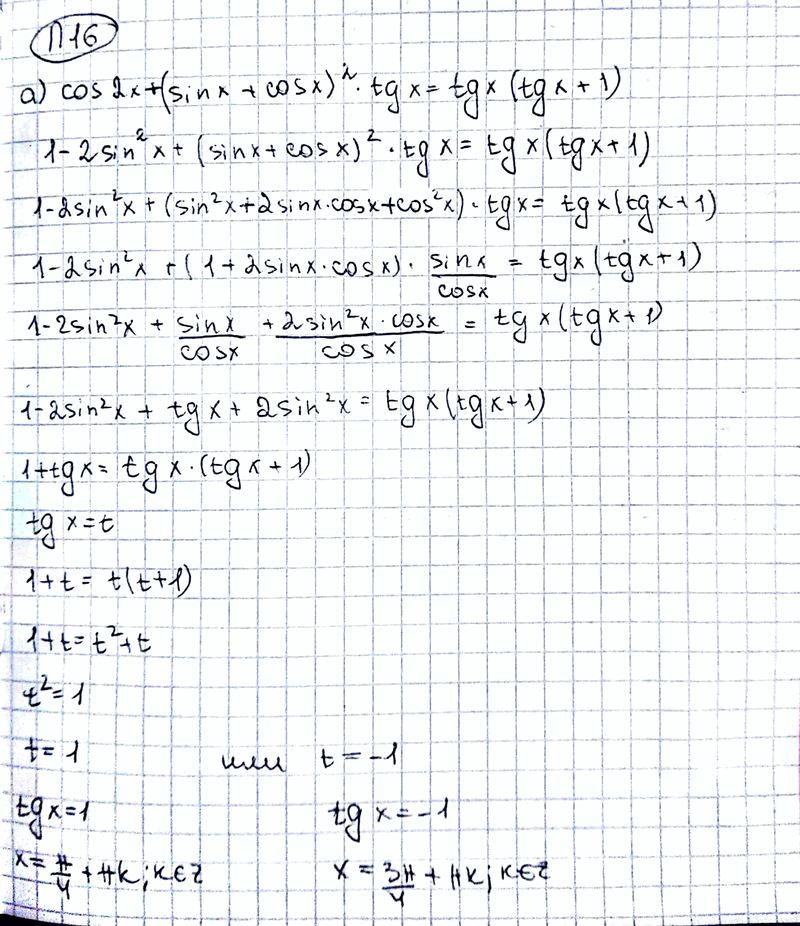 П16
а) cos 2x + (sin x + cos x)² · tg x = tg x (tg x + 1)
1 - 2sin²x + (sin x + cos x)² · tg x = tg x (tg x + 1)
1 - 2sin²x + (sin²x + 2sin x · cos x + cos²x) · tg x = tg x (tg x + 1)
1 - 2sin²x + (1 + 2sin x · cos x) · sin x / cos x = tg x (tg x + 1)
1 - 2sin²x + sin x / cos x + 2sin²x · cos x / cos x = tg x (tg x + 1)
1 - 2sin²x + tg x + 2sin²x = tg x (tg x + 1)
1 + tg x = tg x · (tg x + 1)
tg x = t
1 + t = t(t + 1)
1 + t = t² + t
t² = 1
t = 1 или t = -1
tg x = 1 tg x = -1
x = π/4 + πk; k ∈ Z x = 3π/4 + πk; k ∈ Z